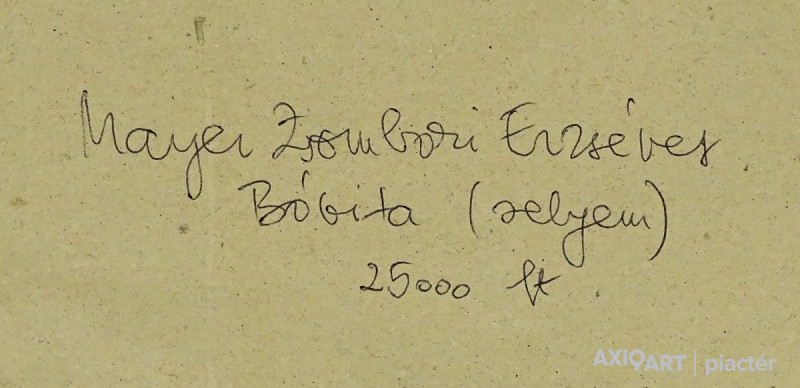 Mayer Zsombori Erzséves
Bóbita (selyem)
25000 ft
AXIOART | piactér